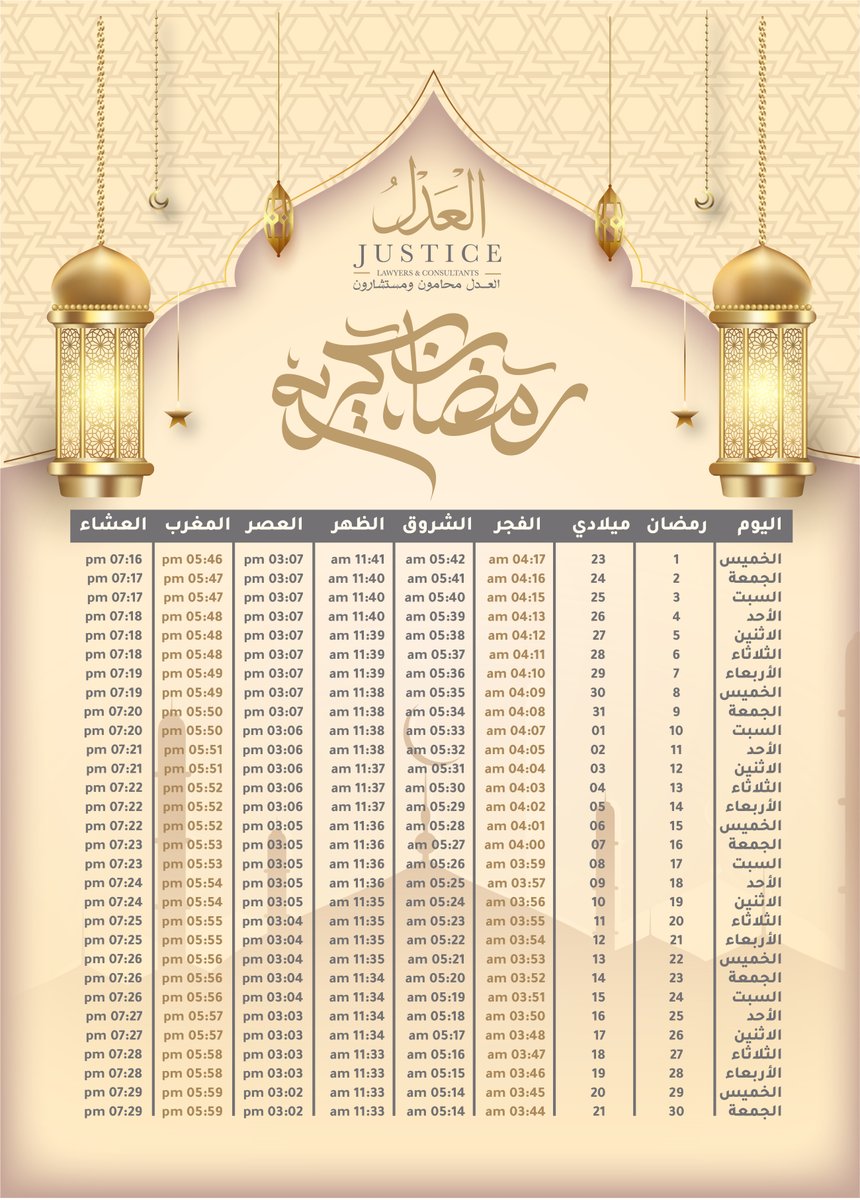 العدل
JUSTICE
LAWYERS & CONSULTANTS
العدل محامون ومستشارون
رمضان كريم
اليوم رمضان ميلادي الفجر الشروق الظهر العصر المغرب العشاء
الخميس 1 23 04:17 am 05:42 am 11:41 am 03:07 pm 05:46 pm 07:16 pm
الجمعة 2 24 04:16 am 05:41 am 11:40 am 03:07 pm 05:47 pm 07:17 pm
السبت 3 25 04:15 am 05:40 am 11:40 am 03:07 pm 05:47 pm 07:17 pm
الأحد 4 26 04:13 am 05:39 am 11:40 am 03:07 pm 05:48 pm 07:18 pm
الاثنين 5 27 04:12 am 05:38 am 11:39 am 03:07 pm 05:48 pm 07:18 pm
الثلاثاء 6 28 04:11 am 05:37 am 11:39 am 03:07 pm 05:48 pm 07:18 pm
الأربعاء 7 29 04:10 am 05:36 am 11:39 am 03:07 pm 05:49 pm 07:19 pm
الخميس 8 30 04:09 am 05:35 am 11:38 am 03:07 pm 05:49 pm 07:19 pm
الجمعة 9 31 04:08 am 05:34 am 11:38 am 03:07 pm 05:50 pm 07:20 pm
السبت 10 01 04:07 am 05:33 am 11:38 am 03:06 pm 05:50 pm 07:20 pm
الأحد 11 02 04:05 am 05:32 am 11:38 am 03:06 pm 05:51 pm 07:21 pm
الاثنين 12 03 04:04 am 05:31 am 11:37 am 03:06 pm 05:51 pm 07:21 pm
الثلاثاء 13 04 04:03 am 05:30 am 11:37 am 03:06 pm 05:52 pm 07:22 pm
الأربعاء 14 05 04:02 am 05:29 am 11:37 am 03:06 pm 05:52 pm 07:22 pm
الخميس 15 06 04:01 am 05:28 am 11:36 am 03:05 pm 05:52 pm 07:22 pm
الجمعة 16 07 04:00 am 05:27 am 11:36 am 03:05 pm 05:53 pm 07:23 pm
السبت 17 08 03:59 am 05:26 am 11:36 am 03:05 pm 05:53 pm 07:23 pm
الأحد 18 09 03:57 am 05:25 am 11:36 am 03:05 pm 05:54 pm 07:24 pm
الاثنين 19 10 03:56 am 05:24 am 11:35 am 03:05 pm 05:54 pm 07:24 pm
الثلاثاء 20 11 03:55 am 05:23 am 11:35 am 03:04 pm 05:55 pm 07:25 pm
الأربعاء 21 12 03:54 am 05:22 am 11:35 am 03:04 pm 05:55 pm 07:25 pm
الخميس 22 13 03:53 am 05:21 am 11:35 am 03:04 pm 05:56 pm 07:26 pm
الجمعة 23 14 03:52 am 05:20 am 11:34 am 03:04 pm 05:56 pm 07:26 pm
السبت 24 15 03:51 am 05:19 am 11:34 am 03:04 pm 05:56 pm 07:26 pm
الأحد 25 16 03:50 am 05:18 am 11:34 am 03:03 pm 05:57 pm 07:27 pm
الاثنين 26 17 03:48 am 05:17 am 11:34 am 03:03 pm 05:57 pm 07:27 pm
الثلاثاء 27 18 03:47 am 05:16 am 11:33 am 03:03 pm 05:58 pm 07:28 pm
الأربعاء 28 19 03:46 am 05:15 am 11:33 am 03:03 pm 05:58 pm 07:28 pm
الخميس 29 20 03:45 am 05:14 am 11:33 am 03:02 pm 05:59 pm 07:29 pm
الجمعة 30 21 03:44 am 05:14 am 11:33 am 03:02 pm 05:59 pm 07:29 pm